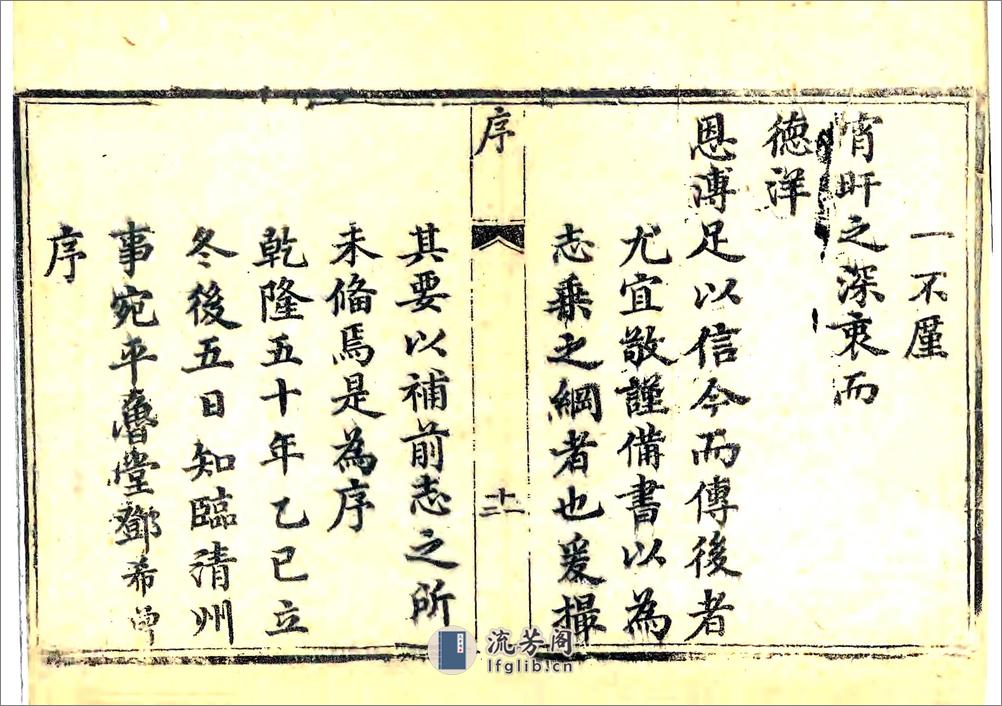 一不厪
宵旰之深衷而
德洋
恩溥足以信今而傳後者
尤宜敬謹備書以為
志乗之綱者也爰撮
序
十二
其要以補前志之所
未偹焉是為序
乾隆五十年乙巳立
冬後五日知臨清州
事宛平魯堂鄧希曾
序
流芳阁
lfglib.cn